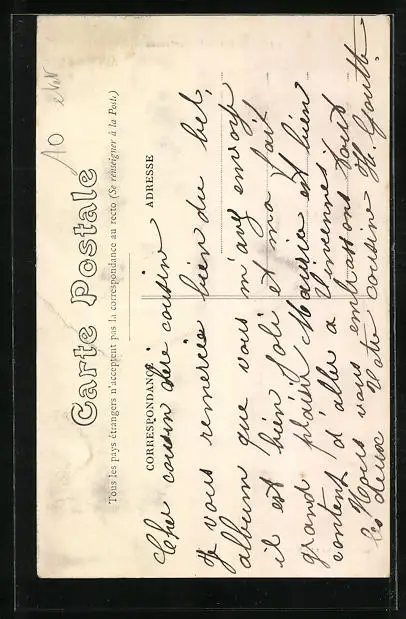 10 eur
Carte Postale
Tous les pays étrangers n'acceptent pas la correspondance au recto (Se renseigner à la Poste)
CORRESPONDANCE
ADRESSE
Cher cousin chere cousin
Je vous remercie bien du bel
album que vous m'avez envoyé
il est bien joli et ma fait
grand plaisir Maurice est bien
content d'aller a Vincennes
Nous vous embrassons tout
les deux Votre cousine H. Gouth